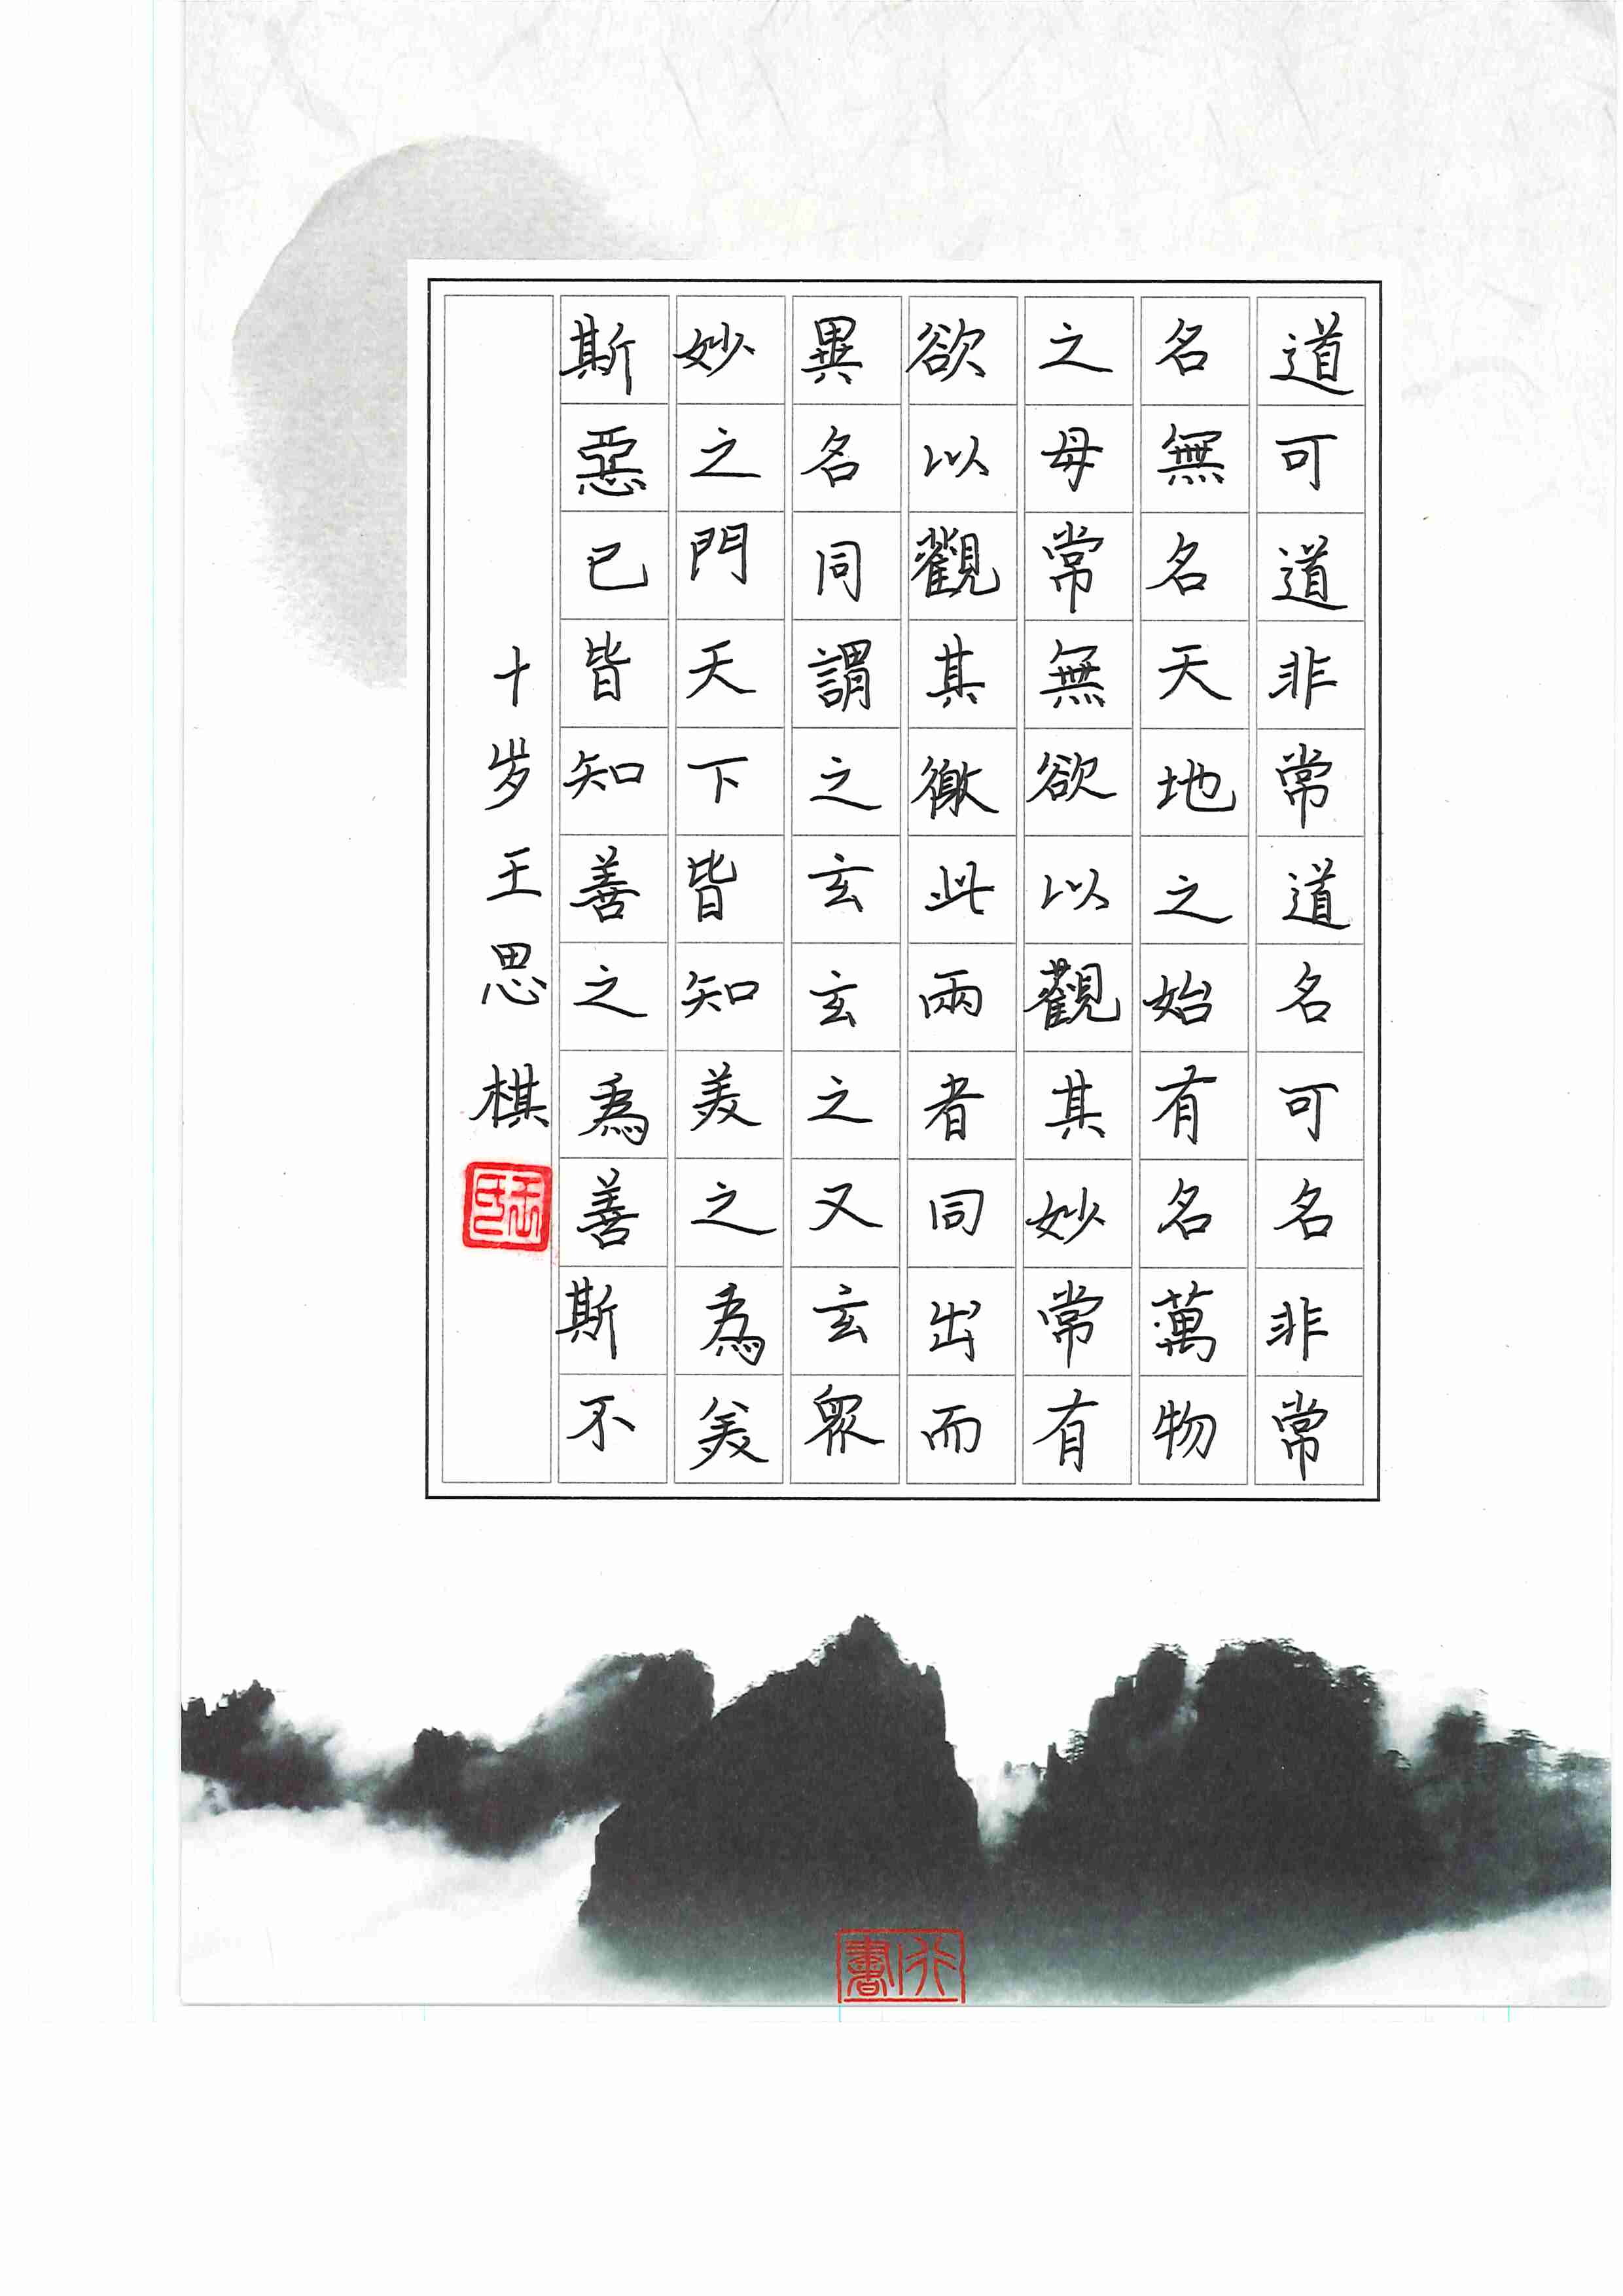 道可道非常道名可名非常
名無名天地之始有名萬物
之母常無欲以觀其妙常有
欲以觀其徼此兩者同出而
異名同謂之玄玄之又玄眾
妙之門天下皆知美之為美
斯惡已皆知善之為善斯不
十岁王思棋
書行